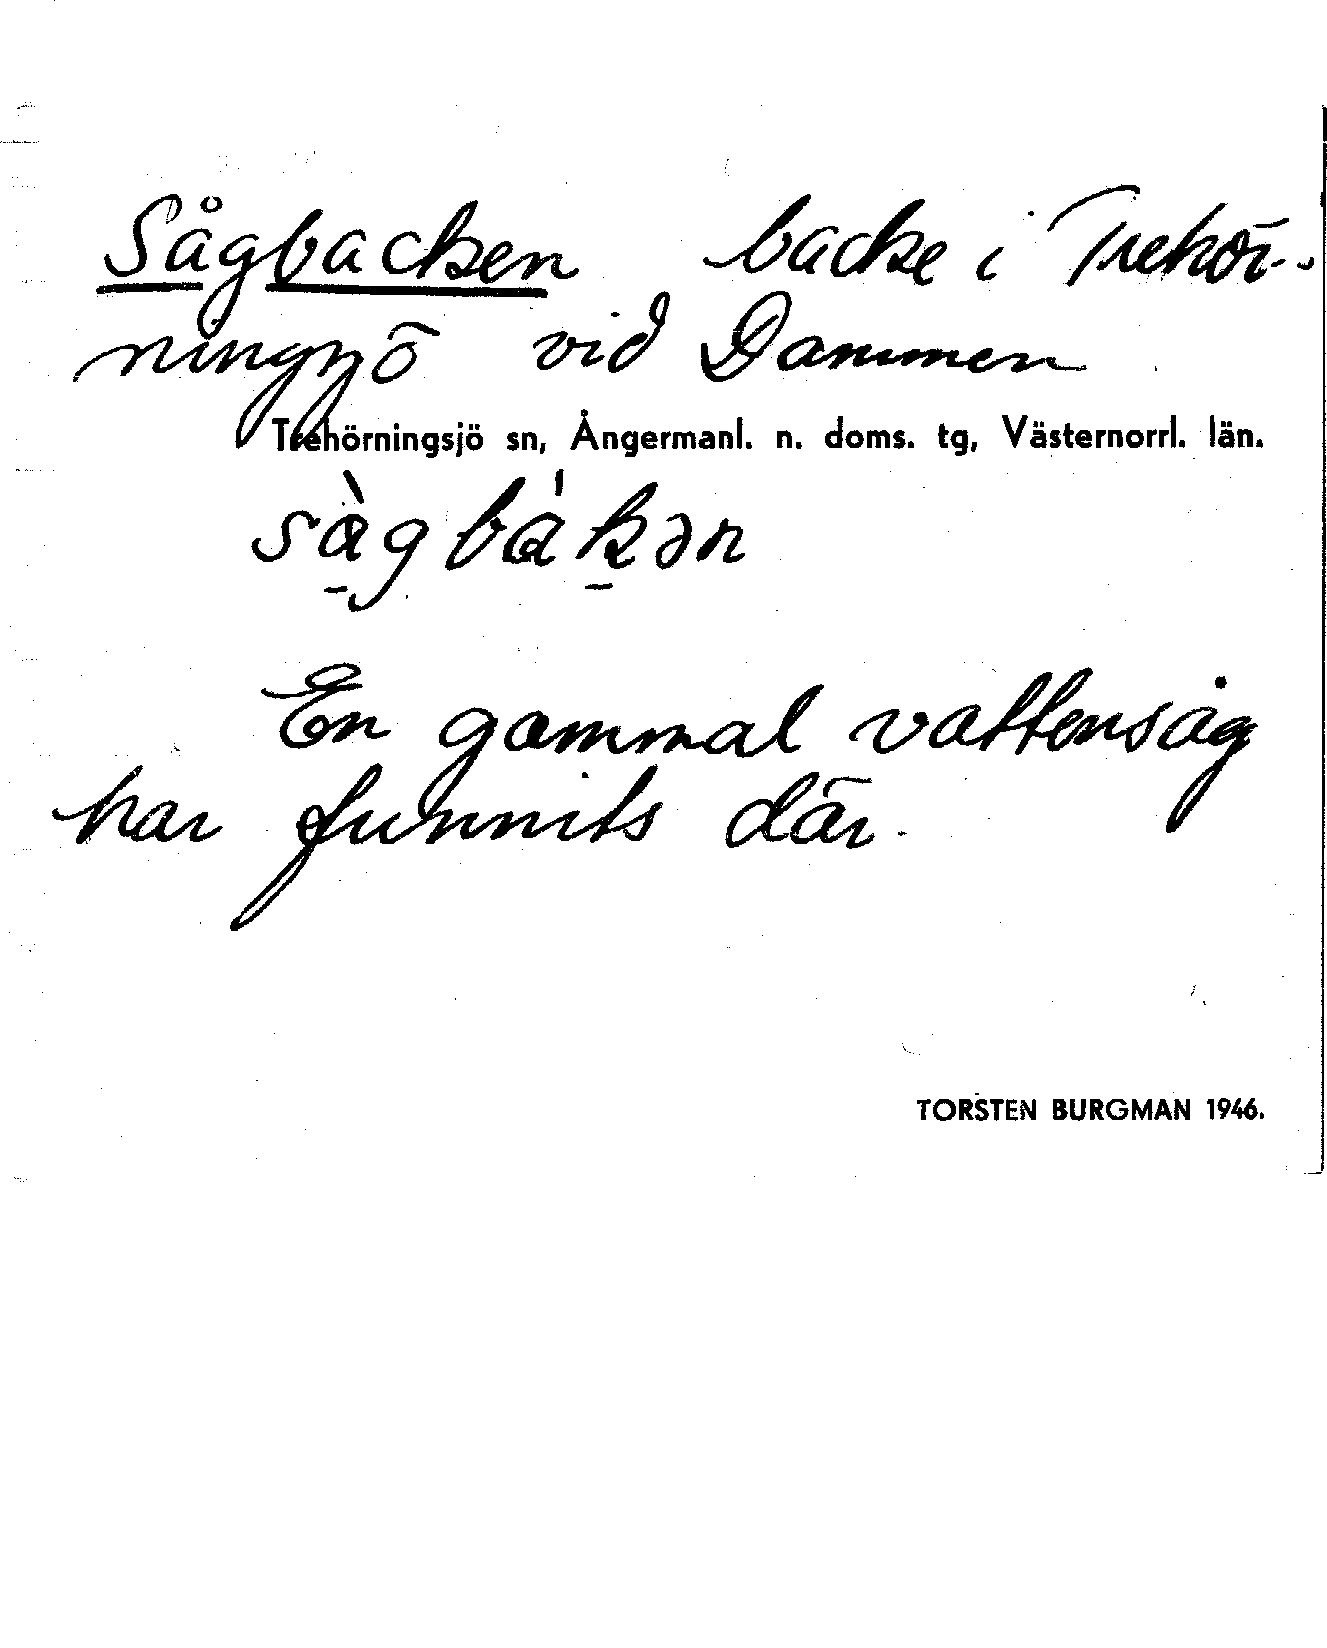 Sågbacken backe i Trehör-
ningsjö vid Dammen
Trehörningsjö sn, Ångermanl. n. doms. tg, Västernorrl. län.
sà̱gbáḵən
En gammal vattensåg
har funnits där.
TORSTEN BURGMAN 1946.